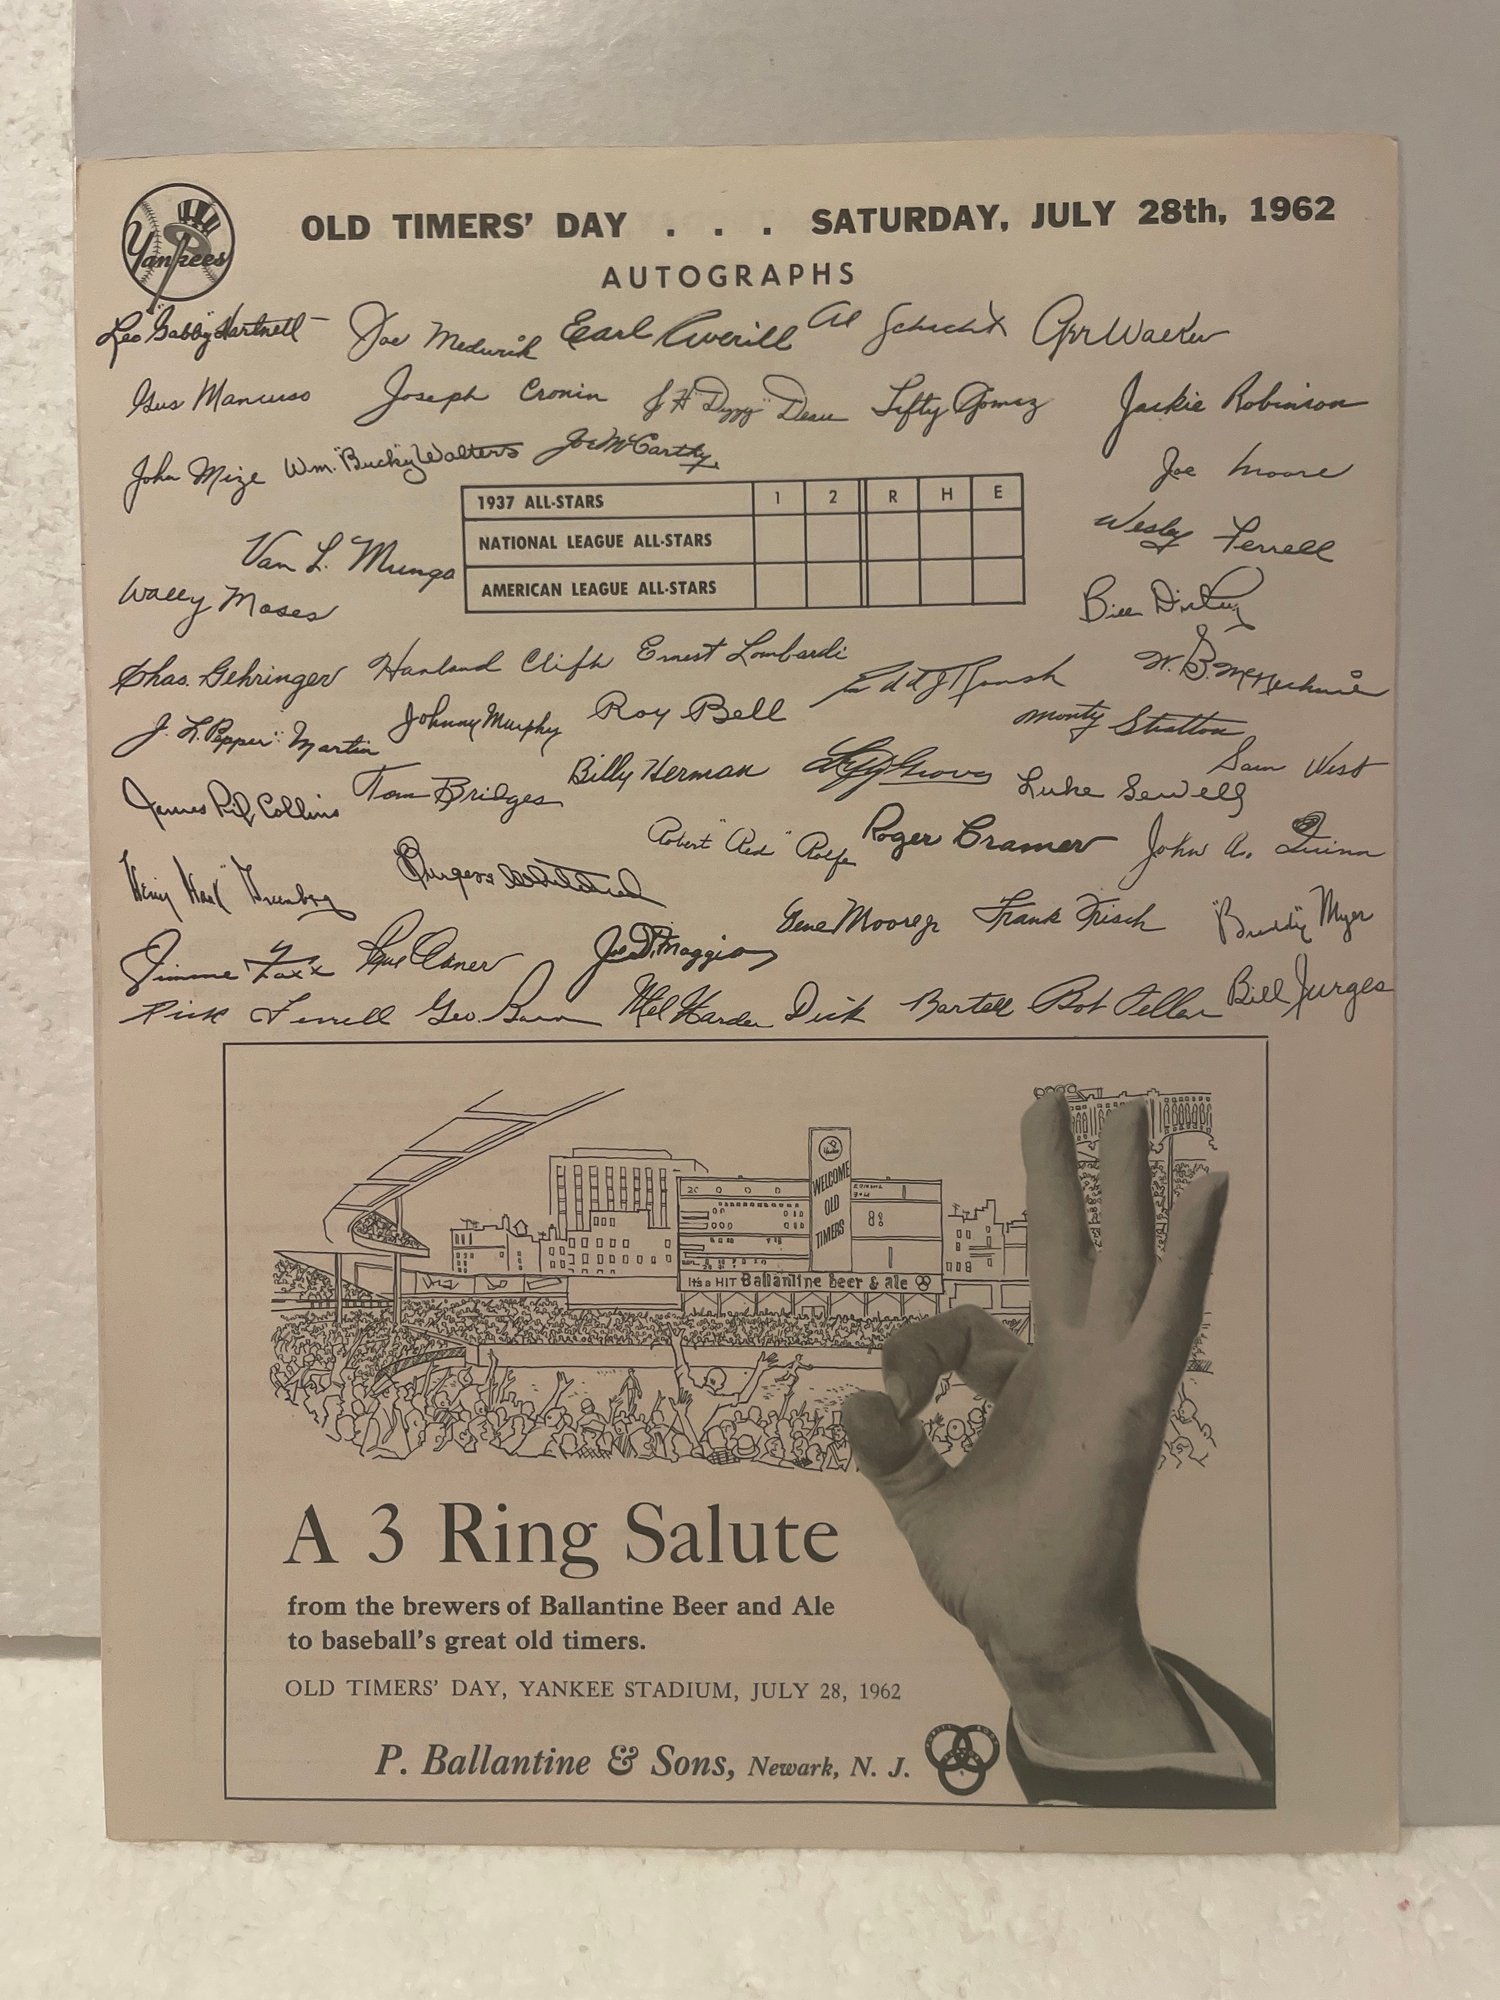 Yankees
OLD TIMERS' DAY . . . SATURDAY, JULY 28th, 1962
AUTOGRAPHS
Leo "Gabby" Hartnett Joe Medwick Earl Averill Al Schacht
Gus Mancuso Joseph Cronin J H "Dizzy" Dean Lefty Gomez Jackie Robinson
John Mize Wm. "Bucky" Walters Joe McCarthy Joe Moore
1937 ALL-STARS 1 2 R H E
NATIONAL LEAGUE ALL-STARS
AMERICAN LEAGUE ALL-STARS
Wesley Ferrell
Van L. Mungo
Wally Moses
Bill Dickey
Chas. Gehringer Harland Clift Ernest Lombardi Edd J Roush W. B. McKechnie
J. L. "Pepper" Martin Johnny Murphy Roy Bell Monty Stratton
James Rip Collins Tom Bridges Billy Herman Lefty Grove Luke Sewell Sam West
Robert "Red" Rolfe Roger Cramer John A. Quinn
Henry "Hank" Greenberg Burgess Whitehead
Gene Moore Jr Frank Frisch "Buddy" Myer
Jimmie Foxx Joe DiMaggio
Rick Ferrell Mel Harder Dick Bartell Bob Feller Bill Jurges
WELCOME
OLD
TIMERS
It's a HIT Ballantine beer & ale
A 3 Ring Salute
from the brewers of Ballantine Beer and Ale
to baseball's great old timers.
OLD TIMERS' DAY, YANKEE STADIUM, JULY 28, 1962
P. Ballantine & Sons, Newark, N. J.